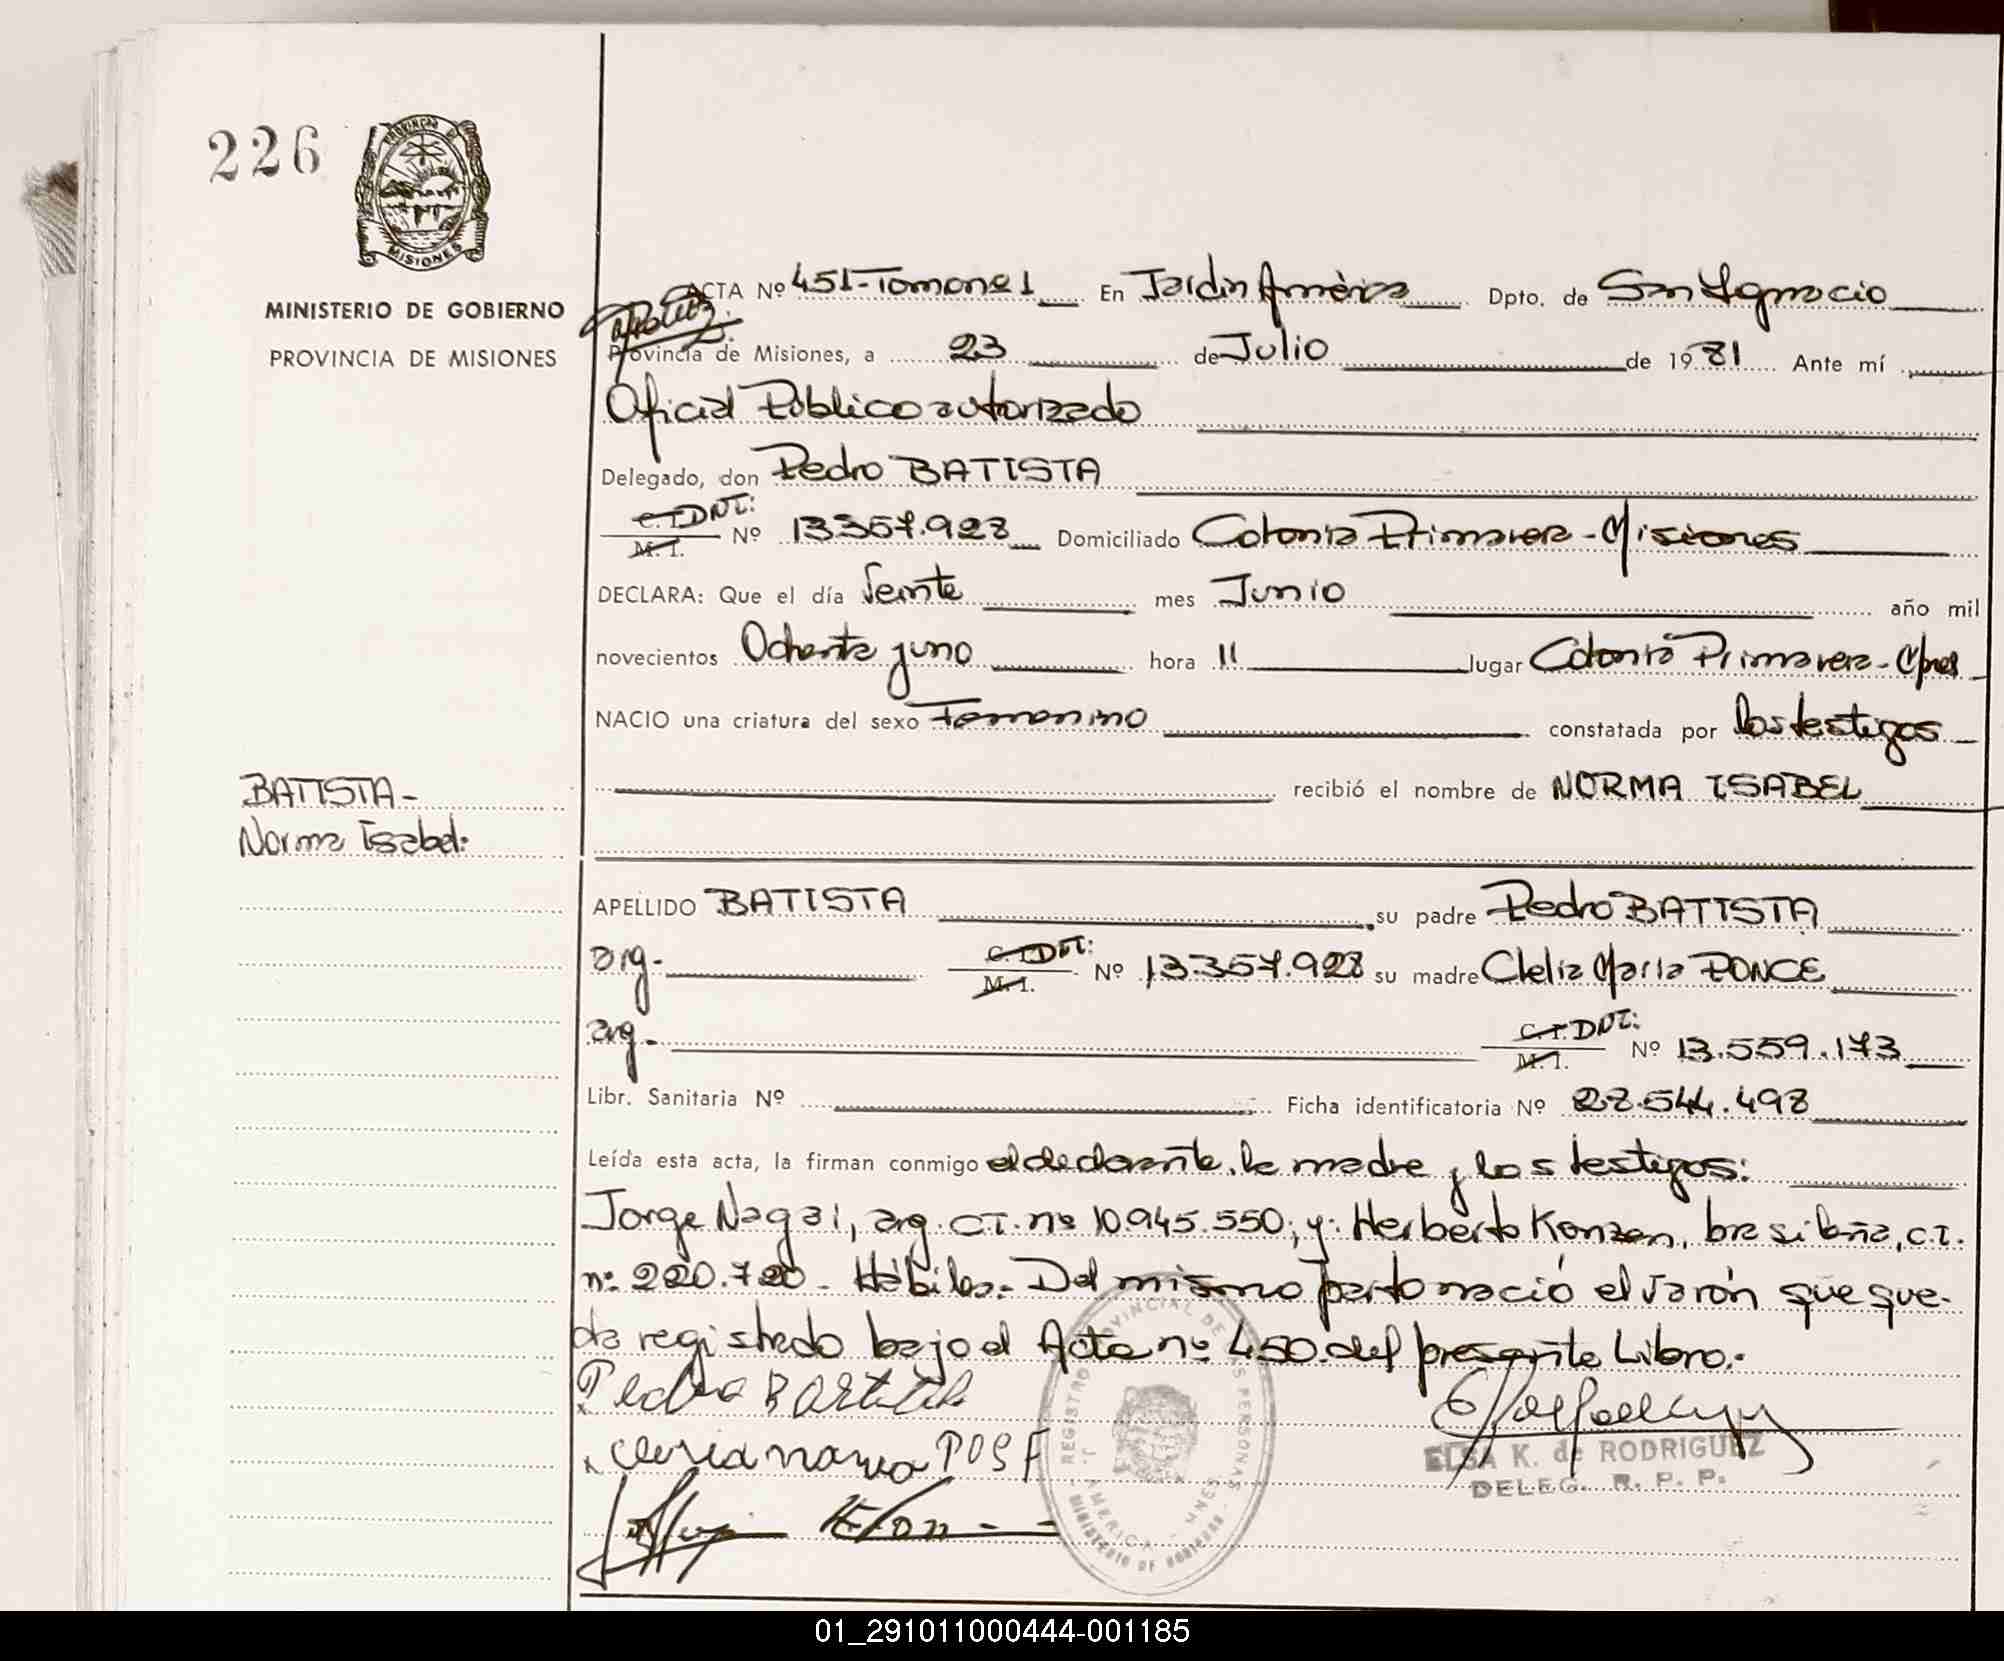 226
PROVINCIA DE
MISIONES
MINISTERIO DE GOBIERNO
PROVINCIA DE MISIONES
ACTA Nº 451-Tomo nº 1 En Jardín América Dpto. de San Ignacio
Provincia de Misiones, a 23 de Julio de 1981 Ante mí
Oficial Público autorizado
Delegado, don Pedro BATISTA
C.I. DNI: M.I. Nº 13.357.928 Domiciliado Colonia Primavera-Misiones
DECLARA: Que el día Veinte mes Junio año mil
novecientos Ochenta y uno hora 11 lugar Colonia Primavera-Mnes
NACIO una criatura del sexo Femenino constatada por los testigos
BATISTA- recibió el nombre de NORMA ISABEL
Norma Isabel.
APELLIDO BATISTA su padre Pedro BATISTA
arg- C.I. DNI: M.I. Nº 13.357.928 su madre Clelia María PONCE
arg- C.I. DNI: M.I. Nº 13.559.173
Libr. Sanitaria Nº Ficha identificatoria Nº 28.544.498
Leída esta acta, la firman conmigo el declarante, la madre y los testigos:
Jorge Nagai, arg. C.I. nº 10.945.550; y: Herberto Konzen, brasileña, C.I.
nº 220.720. Hábiles.- Del mismo parto nació el varón que que-
da registrado bajo el Acta nº 450. del presente Libro.-
REGISTRO PROVINCIAL DE LAS PERSONAS
J. AMERICA - MNES
MINISTERIO DE GOBIERNO
ELSA K. de RODRIGUEZ
DELEG. R. P. P.
01_291011000444-001185